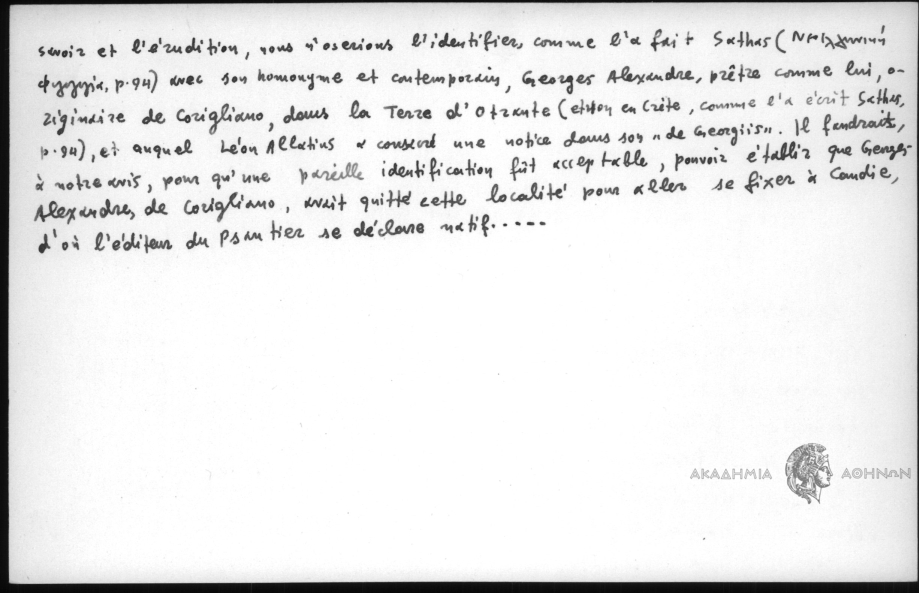 savoir et l'érudition, nous n'oserions l'identifier, comme l'a fait Sathas (Νεοελληνική
Φιλολογία, p. 94) avec son homonyme et contemporain, Georges Alexandre, prêtre comme lui, o-
riginaire de Corigliano, dans la Terre d'Otrante (et non en Crète, comme l'a écrit Sathas,
p. 94), et auquel Léon Allatius a consacré une notice dans son "de Georgiis". Il faudrait,
à notre avis, pour qu'une pareille identification fût acceptable, pouvoir établir que Georges
Alexandre, de Corigliano, avait quitté cette localité pour aller se fixer à Candie,
d'où l'éditeur du Psautier se déclare natif.....
ΑΚΑΔΗΜΙΑ ΑΘΗΝΩΝ